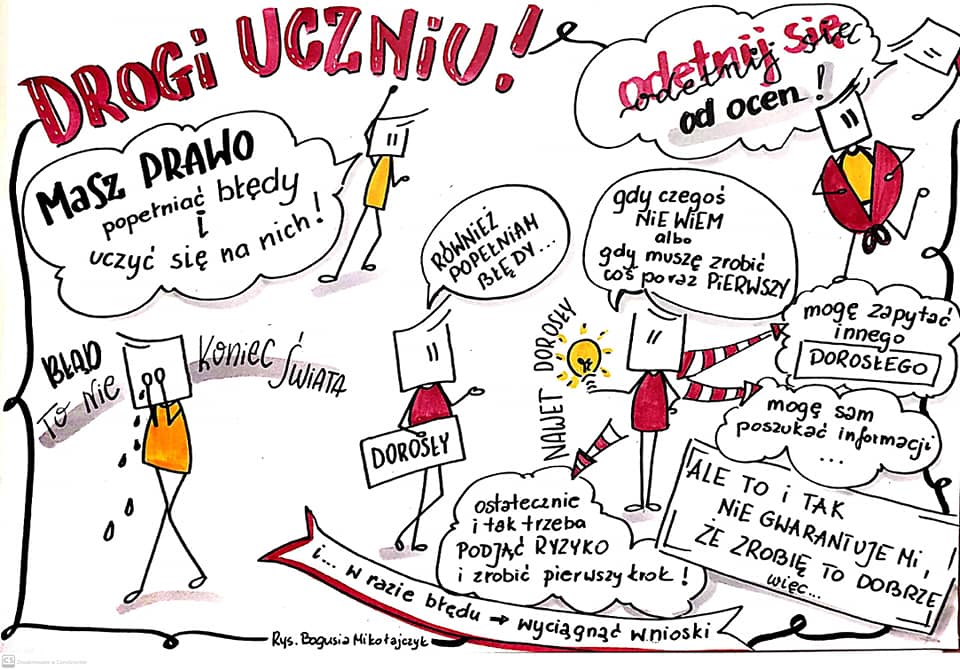 DROGI UCZNIU!
MASZ PRAWO
popełniać błędy
i
uczyć się na nich!
odetnij się
od ocen!
RÓWNIEŻ
POPEŁNIAM
BŁĘDY...
gdy czegoś
NIE WIEM
albo
gdy muszę zrobić
coś po raz PIERWSZY
BŁĄD
TO NIE
KONIEC
ŚWIATA
DOROSŁY
NAWET DOROSŁY
mogę zapytać
innego
DOROSŁEGO
mogę sam
poszukać informacji
...
ALE TO I TAK
NIE GWARANTUJE MI,
ŻE ZROBIĘ TO DOBRZE
więc...
ostatecznie
i tak trzeba
PODJĄĆ RYZYKO
i zrobić pierwszy krok!
i... w razie błędu → wyciągnąć wnioski
Rys. Bogusia Mikołajczyk
CS